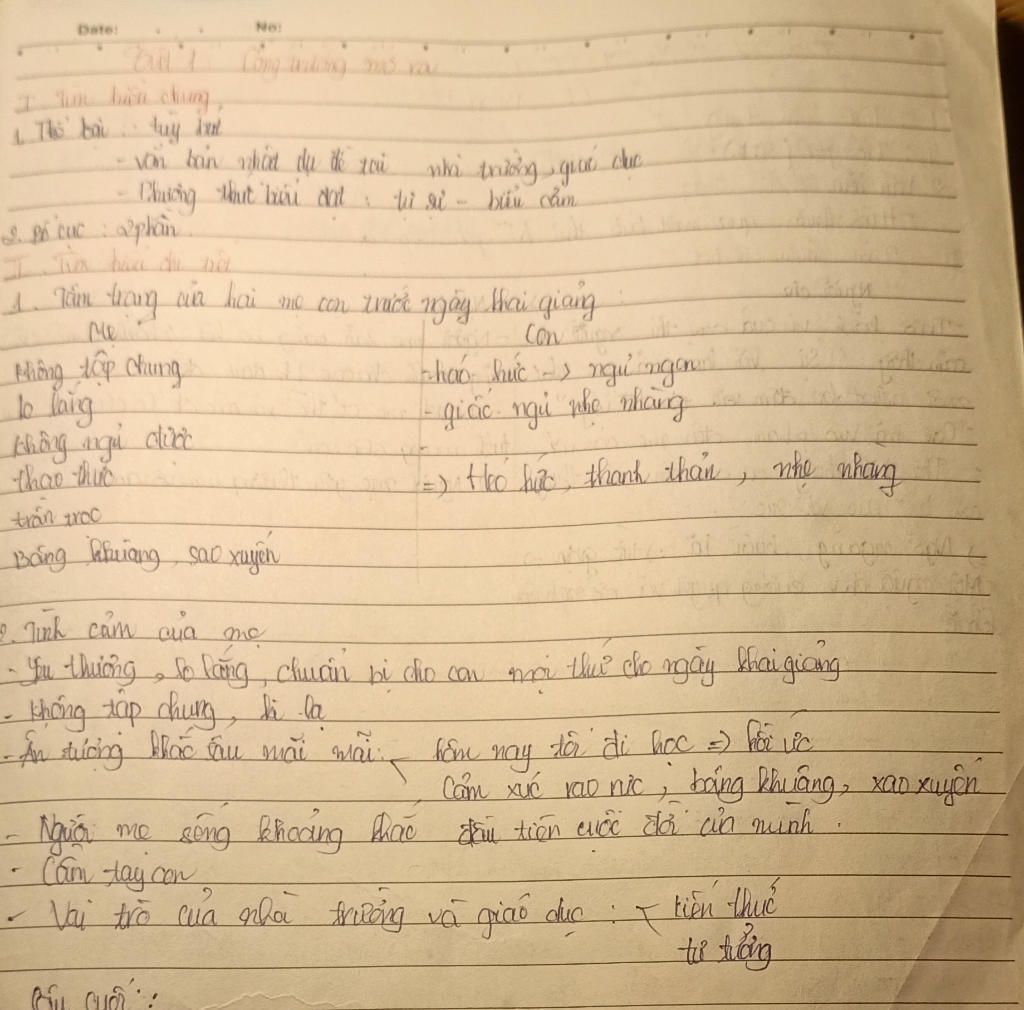 Date: No:
Tiết 1: Cổng trường mở ra
I. Tìm hiểu chung
1. Thể loại: tùy bút
- văn bản nhật dụ đề tài nhà trường, giáo dục
- Phương thức biểu đạt: tự sự - biểu cảm
2. Bố cục: 2 phần
II. Tìm hiểu
1. Tâm trạng của hai mẹ con trước ngày khai giảng:
Mẹ Con
không tập chung - háo hức -> ngủ ngon
lo lắng - giấc ngủ nhẹ nhàng
không ngủ được -
thao thức => Háo hức, thanh thản, nhẹ nhàng
trằn trọc
Bâng khuâng, sao xuyến
2. Tình cảm của mẹ
- Yêu thương, lo lắng, chuẩn bị cho con mọi thứ cho ngày khai giảng
- không tập chung,
- Ấn tượng khắc sâu mãi mãi: < hôm nay tôi đi học => hồi ức
Cảm xúc rạo rực, bâng khuâng, xao xuyến
- Người mẹ sống khoảng khắc đầu tiên cuộc đời của mình.
- Cầm tay con
- Vai trò của nhà trường và giáo dục: < kiến thức
tư tưởng
Câu cuối: